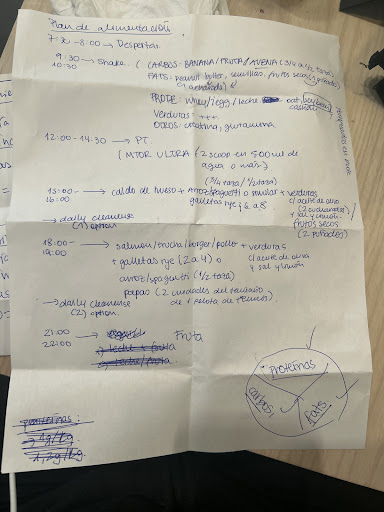 Plan de alimentación
7:30 - 8:00 → Despertar
9:30 → Shake. ( CARBOS: BANANA/FRUTA/AVENA (3/4 a 1/2 taza)
10:30
FATS: peanut butter, semillas, frutos secos,
(1 cucharada)
PROTE: whey/egg/leche oat,
Verduras: +++
OTROS: creatina, glutamina
12:00 - 14:30 → PT.
(MTOR ULTRA (2 scoop en 500 ml de
agua o más.)
(3/4 taza / 1/2 taza)
15:00 - → caldo de hueso + arroz/spaguetti o similar + verduras
16:00
galletas rye 6 a 8
c/ aceite de oliva
(2 cucharadas)
+ sal y limón
frutos secos
(2 puñados)
→ daily cleanense
(1) option.
18:00 - → salmón/trucha/burger/pollo + verduras
19:00
+ galletas rye (2 a 4) o
c/ aceite de oliva
y sal y limón
arroz/spaguetti (1/2 taza)
papas (2 unidades del tamaño
de 1 pelota de tennis).
→ daily cleanense
(2) option.
21:00 → Fruta
22:00
→ leche + fruta
→ leche/fruta
proteinas
carbos
fats
proteinas:
1g/kg
1,2g/kg